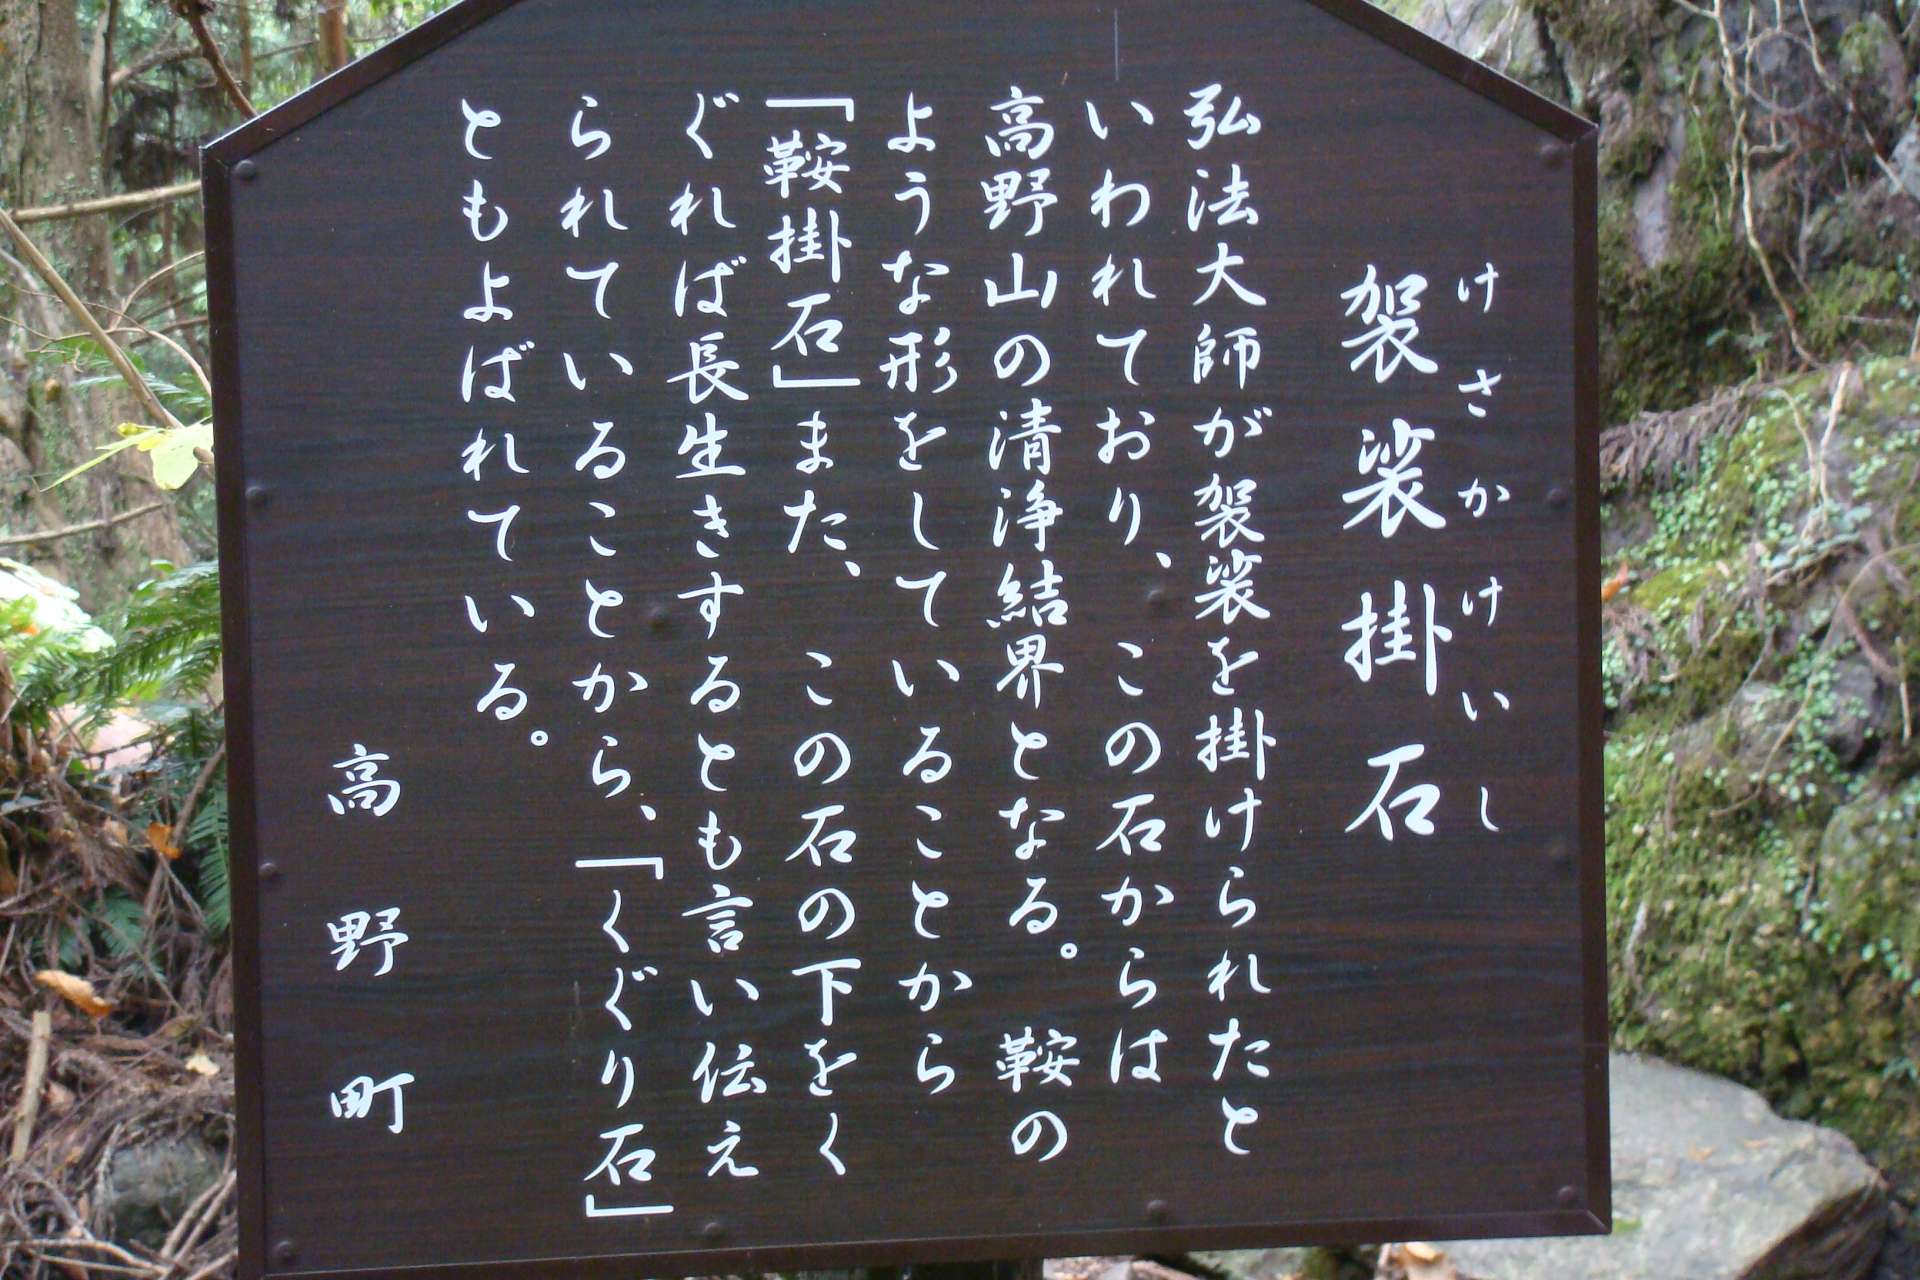 けさかけいし
袈裟掛石
弘法大師が袈裟を掛けられたと
いわれており、この石からは
高野山の清浄結界となる。鞍の
ような形をしていることから
「鞍掛石」また、この石の下をく
ぐれば長生きするとも言い伝え
られていることから、「くぐり石」
ともよばれている。
高野町